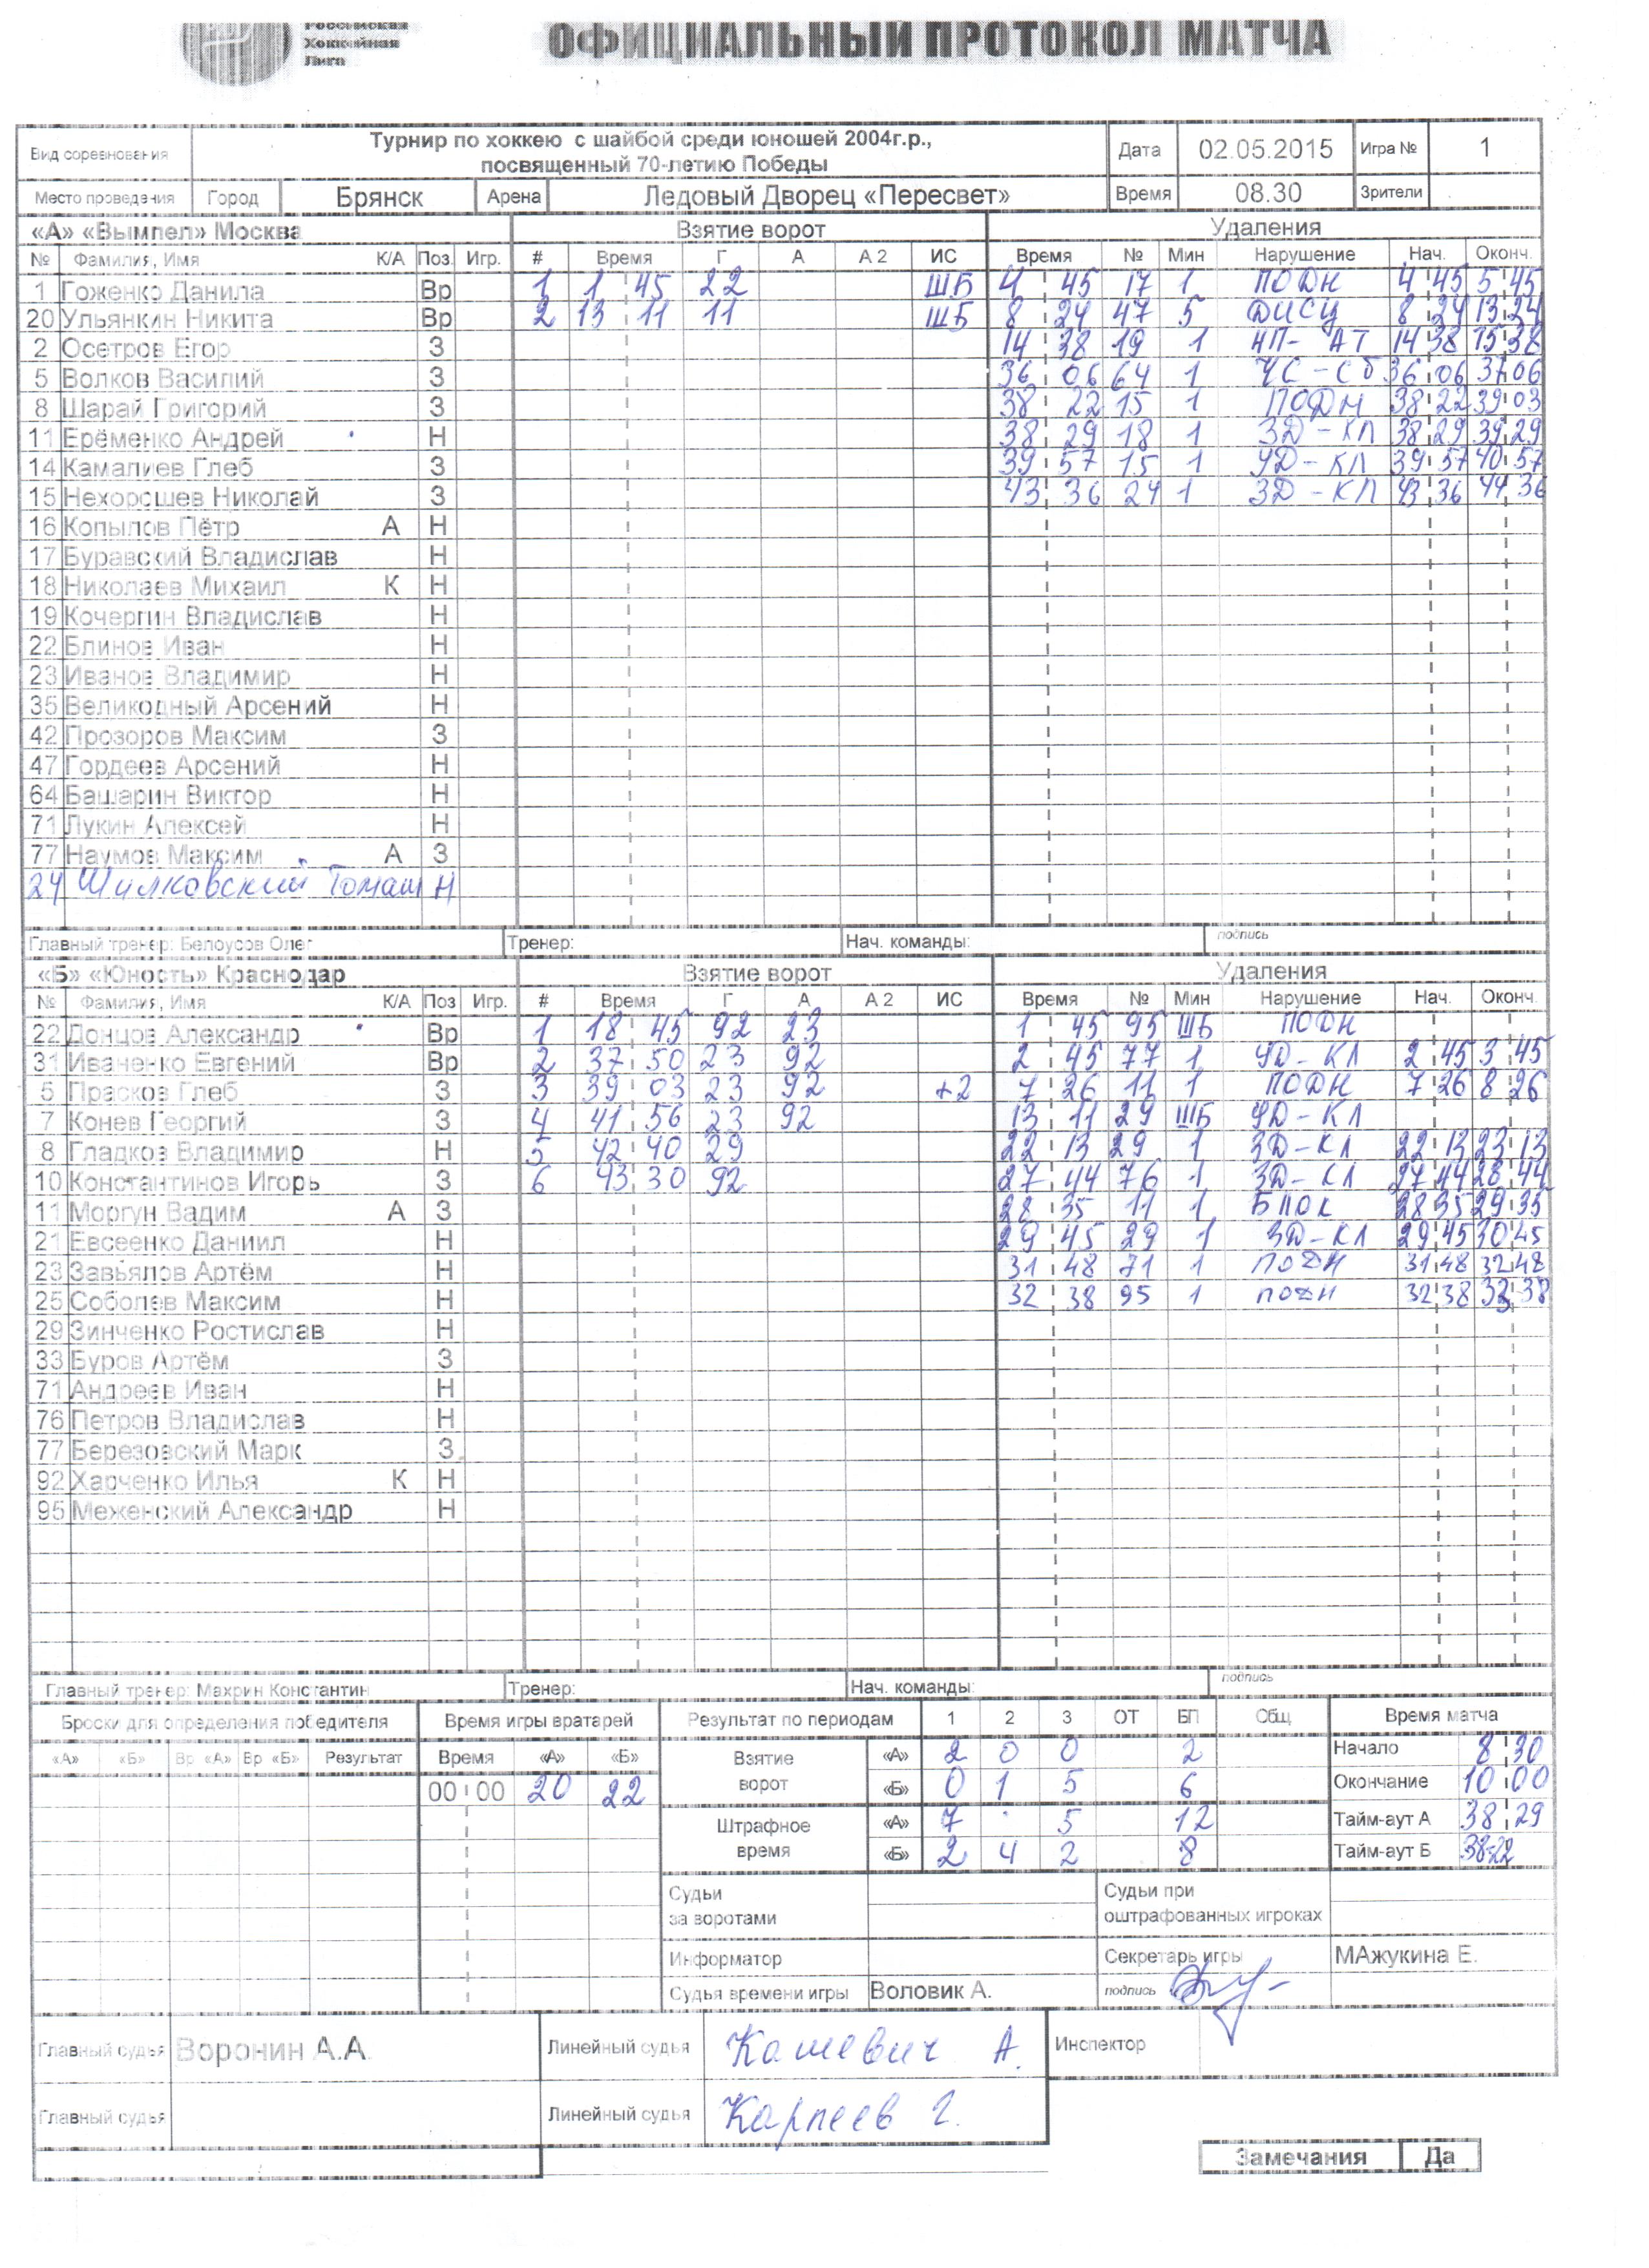 Российская
Хоккейная
Лига
ОФИЦИАЛЬНЫЙ ПРОТОКОЛ МАТЧА
Вид соревнования Турнир по хоккею с шайбой среди юношей 2004г.р., посвященный 70-летию Победы Дата 02.05.2015 Игра № 1
Место проведения Город Брянск Арена Ледовый Дворец «Пересвет» Время 08.30 Зрители
«А» «Вымпел» Москва Взятие ворот Удаления
№ Фамилия, Имя К/А Поз. Игр. # Время Г А А 2 ИС Время № Мин Нарушение Нач. Оконч.
1 Гоженко Данила Вр 1 1 45 22 ШБ 4 45 17 1 ПОДН 4 45 5 45
20 Ульянкин Никита Вр 2 13 11 11 ШБ 8 24 47 5 ДИСЦ 8 24 13 24
2 Осетров Егор З 14 38 19 1 НП-АТ 14 38 15 38
5 Волков Василий З 36 06 64 1 ЧС-Сб 36 06 37 06
8 Шарай Григорий З 38 22 15 1 ПОДН 38 22 39 03
11 Ерёменко Андрей Н 38 29 18 1 ЗД-КЛ 38 29 39 29
14 Камалиев Глеб З 39 57 15 1 УД-КЛ 39 57 40 57
15 Нехорошев Николай З 43 36 24 1 ЗД-КЛ 43 36 44 36
16 Копылов Пётр А Н
17 Буравский Владислав Н
18 Николаев Михаил К Н
19 Кочергин Владислав Н
22 Блинов Иван Н
23 Иванов Владимир Н
35 Великодный Арсений Н
42 Прозоров Максим З
47 Гордеев Арсений Н
64 Башарин Виктор Н
71 Лукин Алексей Н
77 Наумов Максим А З
24 Шилковский Томаш Н
Главный тренер: Белоусов Олег Тренер: Нач. команды: подпись
«Б» «Юность» Краснодар Взятие ворот Удаления
№ Фамилия, Имя К/А Поз Игр. # Время Г А А 2 ИС Время № Мин Нарушение Нач. Оконч.
22 Донцов Александр Вр 1 18 45 92 23 1 45 95 ШБ ПОДН
31 Иваченко Евгений Вр 2 37 50 23 92 2 45 77 1 УД-КЛ 2 45 3 45
5 Прасков Глеб З 3 39 03 23 92 +2 7 26 11 1 ПОДН 7 26 8 26
7 Конев Георгий З 4 41 56 23 92 13 11 29 ШБ УД-КЛ
8 Гладков Владимир Н 5 42 40 29 22 13 29 1 ЗД-КЛ 22 13 23 13
10 Константинов Игорь З 6 43 30 92 27 44 76 1 ЗД-КЛ 27 44 28 44
11 Моргун Вадим А З 28 35 11 1 БЛОК 28 35 29 35
21 Евсеенко Даниил Н 29 45 29 1 ЗД-КЛ 29 45 30 45
23 Завьялов Артём Н 31 48 71 1 ПОДН 31 48 32 48
25 Соболев Максим Н 32 38 95 1 ПОДН 32 38 33 38
29 Зинченко Ростислав Н
33 Буров Артём З
71 Андреев Иван Н
76 Петров Владислав Н
77 Березовский Марк З
92 Харченко Илья К Н
95 Меженский Александр Н
Главный тренер: Махрин Константин Тренер: Нач. команды: подпись
Броски для определения победителя Время игры вратарей Результат по периодам 1 2 3 ОТ БП Общ Время матча
«А» «Б» Вр «А» Вр «Б» Результат Время «А» «Б» Взятие ворот «А» 2 0 0 2 Начало 8 30
00 00 20 22 «Б» 0 1 5 6 Окончание 10 00
Штрафное время «А» 7 · 5 12 Тайм-аут А 38 29
«Б» 2 4 2 8 Тайм-аут Б 38-22
Судьи за воротами Судьи при оштрафованных игроках
Информатор Секретарь игры МАжукина Е.
Судья времени игры Воловик А. подпись
Главный судья Воронин А.А. Линейный судья Кашевич А. Инспектор
Главный судья Линейный судья Карпеев Г.
Замечания Да